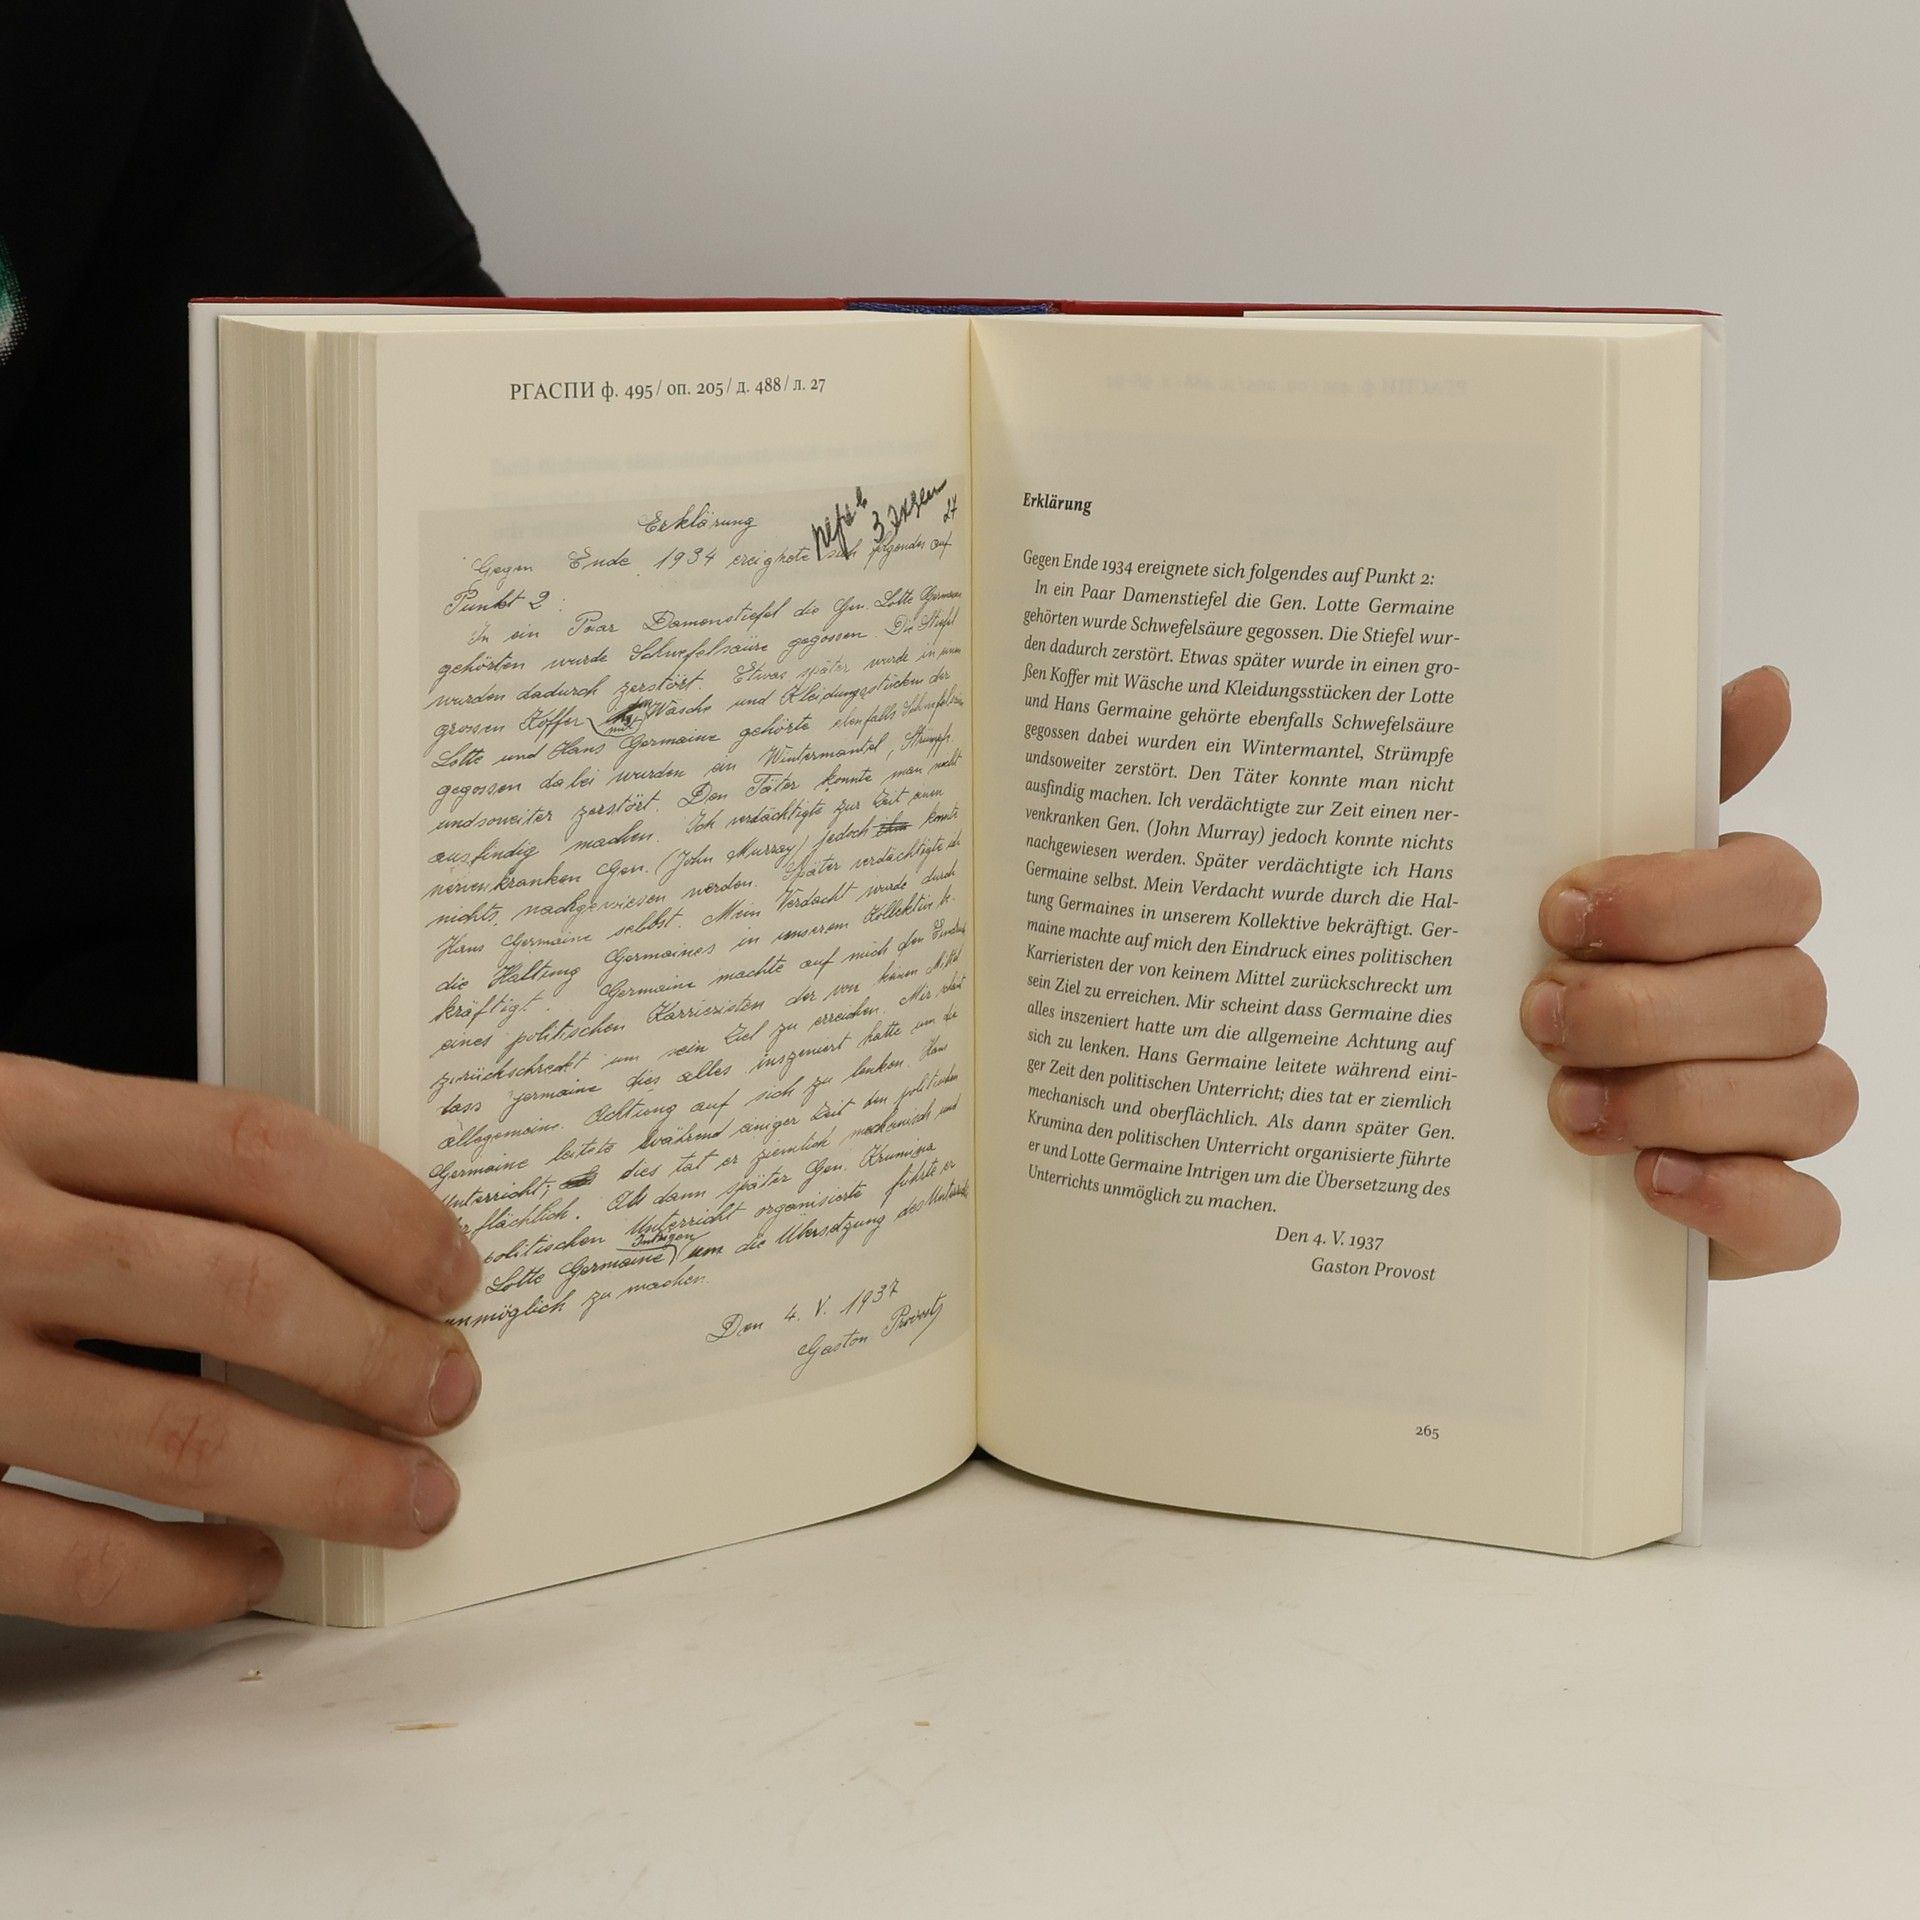 РГАСПИ ф. 495/ оп. 205/ д. 488/ л. 27
Erklärung
3
27
Gegen Ende 1934 ereignete sich folgendes auf
Punkt 2:
In ein Paar Damenstiefel die Gen. Lotte Germaine
gehörten wurde Schwefelsäure gegossen. Die Stiefel
wurden dadurch zerstört. Etwas später wurde in einen
grossen Koffer mit Wäsche und Kleidungsstücken der
Lotte und Hans Germaine gehörte ebenfalls Schwefelsäure
gegossen dabei wurden ein Wintermantel, Strümpfe
undsoweiter zerstört. Den Täter konnte man nicht
ausfindig machen. Ich verdächtigte zur Zeit einen
nervenkranken Gen. (John Murray) jedoch konnte
nichts nachgewiesen werden. Später verdächtigte ich
Hans Germaine selbst. Mein Verdacht wurde durch
die Haltung Germaines in unserem Kollektiv be-
kräftigt. Germaine machte auf mich den Eindruck
eines politischen Karrieristen der von keinem Mittel
zurückschreckt um sein Ziel zu erreichen. Mir scheint
dass Germaine dies alles inszeniert hatte um die
allegemeine Achtung auf sich zu lenken. Hans
Germaine leitete während einiger Zeit den politischen
Unterricht; dies tat er ziemlich mechanisch und
rflächlich. Als dann später Gen. Krumina
politischen Unterricht organisierte führte er
Lotte Germaine Intrigen um die Übersetzung des Unterrichts
unmöglich zu machen.
Den 4. V. 1937
Gaston Provost
Erklärung
Gegen Ende 1934 ereignete sich folgendes auf Punkt 2:
In ein Paar Damenstiefel die Gen. Lotte Germaine
gehörten wurde Schwefelsäure gegossen. Die Stiefel wur-
den dadurch zerstört. Etwas später wurde in einen gro-
ßen Koffer mit Wäsche und Kleidungsstücken der Lotte
und Hans Germaine gehörte ebenfalls Schwefelsäure
gegossen dabei wurden ein Wintermantel, Strümpfe
undsoweiter zerstört. Den Täter konnte man nicht
ausfindig machen. Ich verdächtigte zur Zeit einen ner-
venkranken Gen. (John Murray) jedoch konnte nichts
nachgewiesen werden. Später verdächtigte ich Hans
Germaine selbst. Mein Verdacht wurde durch die Hal-
tung Germaines in unserem Kollektive bekräftigt. Ger-
maine machte auf mich den Eindruck eines politischen
Karrieristen der von keinem Mittel zurückschreckt um
sein Ziel zu erreichen. Mir scheint dass Germaine dies
alles inszeniert hatte um die allgemeine Achtung auf
sich zu lenken. Hans Germaine leitete während eini-
ger Zeit den politischen Unterricht; dies tat er ziemlich
mechanisch und oberflächlich. Als dann später Gen.
Krumina den politischen Unterricht organisierte führte
er und Lotte Germaine Intrigen um die Übersetzung des
Unterrichts unmöglich zu machen.
Den 4. V. 1937
Gaston Provost
265